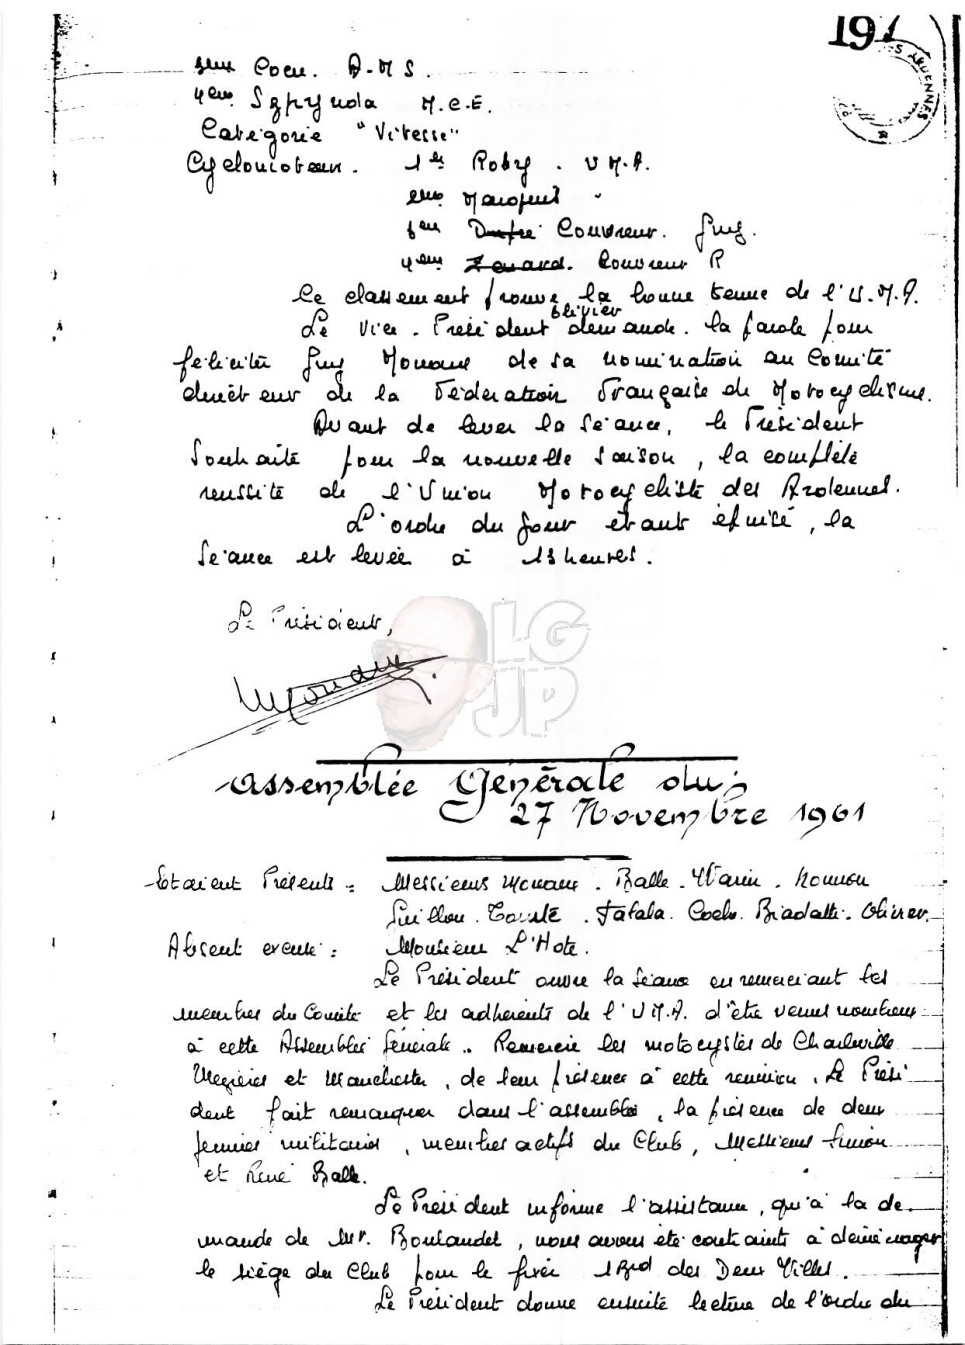 197
ARDENNES
3eme Coeu. A-M S.
4eme Szpynda M.C.E.
Categorie "Vitesse"
Cyclomoteur. 1er Roby. U M.A.
2eme Marquet "
3eme Dupré Couvreur. Guy.
4eme Couvreur R
Le classement prouve la bonne tenue de l'U.M.A.
Olivier
Le Vice-Président demande la parole pour
féliciter Guy Monane de sa nomination au Comité
directeur de la Fédération Française de Motocyclisme.
Avant de lever la séance, le Président
souhaite pour la nouvelle saison, la complète
reussite de l'Union Motocycliste des Ardennes.
L'ordre du Jour étant épuisé, la
Séance est levée à 13 heures.
Le Président,
LG
JP
Assemblée Générale du
27 Novembre 1961
Etaient Présents = Messieurs Monane. Balle. Warin.
Guillou. Fafala. Coelo. Biadatti. Olivier.
Absent excusé : Monsieur L'Hote.
Le Président ouvre la séance en remerciant les
membres du Comité et les adherents de l'U M.A. d'être venus nombreux
à cette Assemblée Générale. Remercie les motocyclistes de Charleville
Mezieres et Manchester, de leur présence à cette reunion. Le Prési
dent fait remarquer dans l'assemblée, la présence de deux
jeunes militaires, membres actifs du Club, Messieurs Simon
et René Balle.
Le Président informe l'assistance, qu'à la de
mande de Mr. Boulandet, nous avons été contraints à déménager
le siège du Club pour le fixer 1 Bd des Deux Villes.
Le Président donne ensuite lecture de l'ordre du